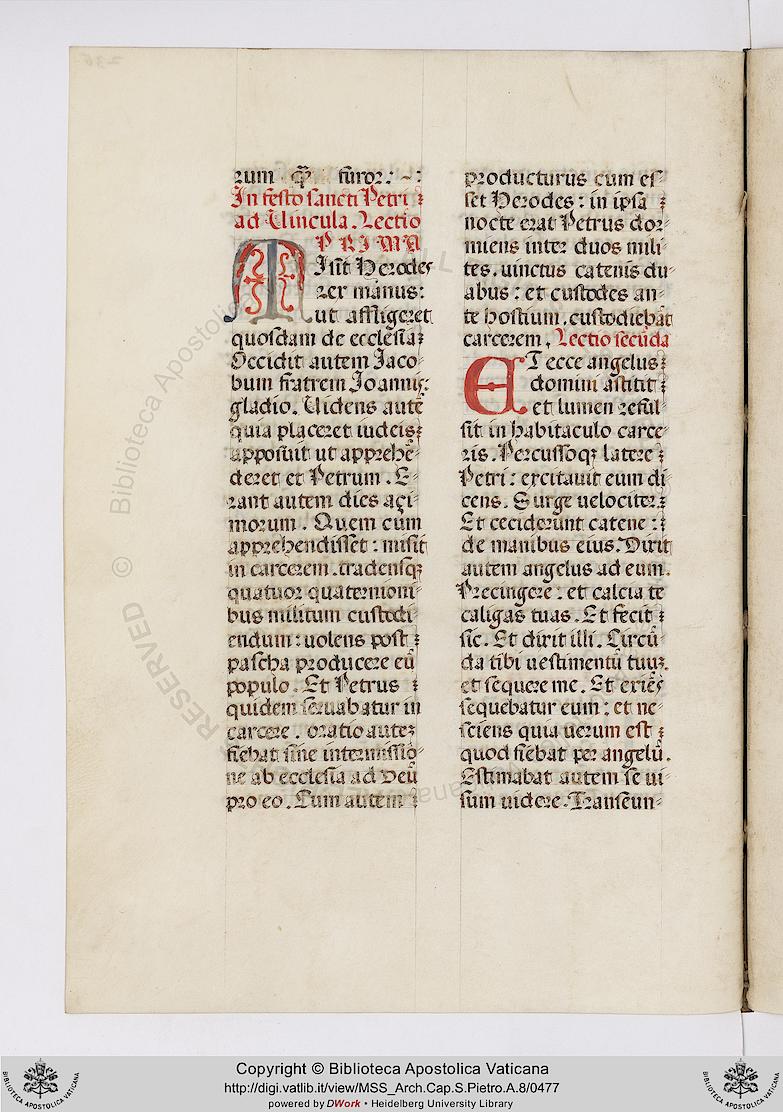 rum ꝙ̃ furor: ~ :
In festo sancti Petri ꝫ
ad Vincula. Lectio
PRIMA
MIsit Herodes
rex manus:
ut affligeret
quosdam de ecclesiaꝫ
Occidit autem Jaco-
bum fratrem Joannis:
gladio. Videns autē
quia placeret iudeisꝫ
apposuit ut apprehē-
deret et Petrum. E-
rant autem dies açi-
morum. Quem cūm
apprehendisset: misit
in carcerem. tradensqꝫ
quatuor quaternioni-
bus militum custodi-
endum: uolens post ꝫ
pascha producere eū
populo. Et Petrus ꝫ
quidem seruabatur in
carcere. oratio auteꝫ
fiebat sine intermissio-
ne ab ecclesia ad Deū
pro eo. Cum autem ꝫ
producturus eum es-
set Herodes: in ipsa ꝫ
nocte erat Petrus dor-
miens inter duos mili-
tes. uinctus catenis du-
abus: et custodes an-
te hostium. custodiebāt
carcerem. Lectio secūda
ET ecce angelusꝫ
domini astitit ꝫ
et lumen reful-
sit in habitaculo carce-
ris. Percussoqꝫ latere ꝫ
Petri: excitauit eum di-
cens. Surge uelociter.ꝫ
Et ceciderunt catene: ꝫ
de manibus eius. Dixit
autem angelus ad eum.
Precingere: et calcia te
caligas tuas. Et fecit ꝫ
sic. Et dixit illi. Circū-
da tibi uestimentū tuuꝫ.
et sequere me. Et exiēs
sequebatur eum: et ne-
sciens quia uerum est ꝫ
quod fiebat per angelū.
Estimabat autem se ui-
sum uidere. Transeun-
© Biblioteca Apostolica Vaticana
RESERVED
Copyright © Biblioteca Apostolica Vaticana
http://digi.vatlib.it/view/MSS_Arch.Cap.S.Pietro.A.8/0477
powered by DWork • Heidelberg University Library
BIBLIOTECA APOSTOLICA VATICANA
BIBLIOTECA APOSTOLICA VATICANA